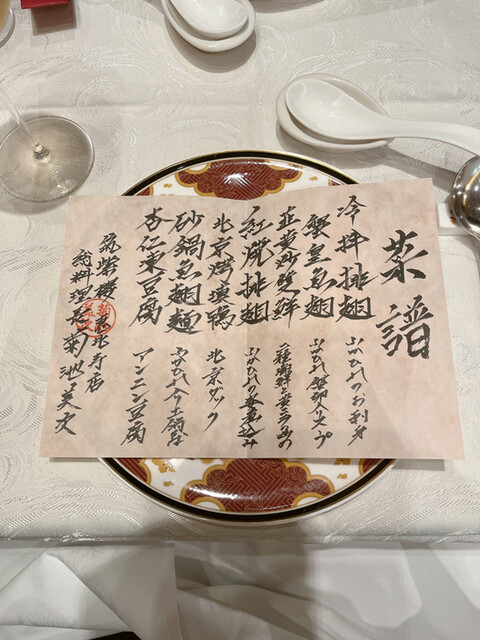 菜譜
冷拌排翅 ふかひれのお刺身
蟹皇魚翅 ふかひれ蟹卵入りスープ
韮黄炒雙鮮 二種海鮮と黄ニラの
紅焼排翅 ふかひれの姿煮込み
北京烤填鴨 北京ダック
砂鍋魚翅麺 ふかひれ入り土鍋そば
杏仁凍豆腐 アンニン豆腐
筑紫樓 恵比寿店
総料理長 菊池英文